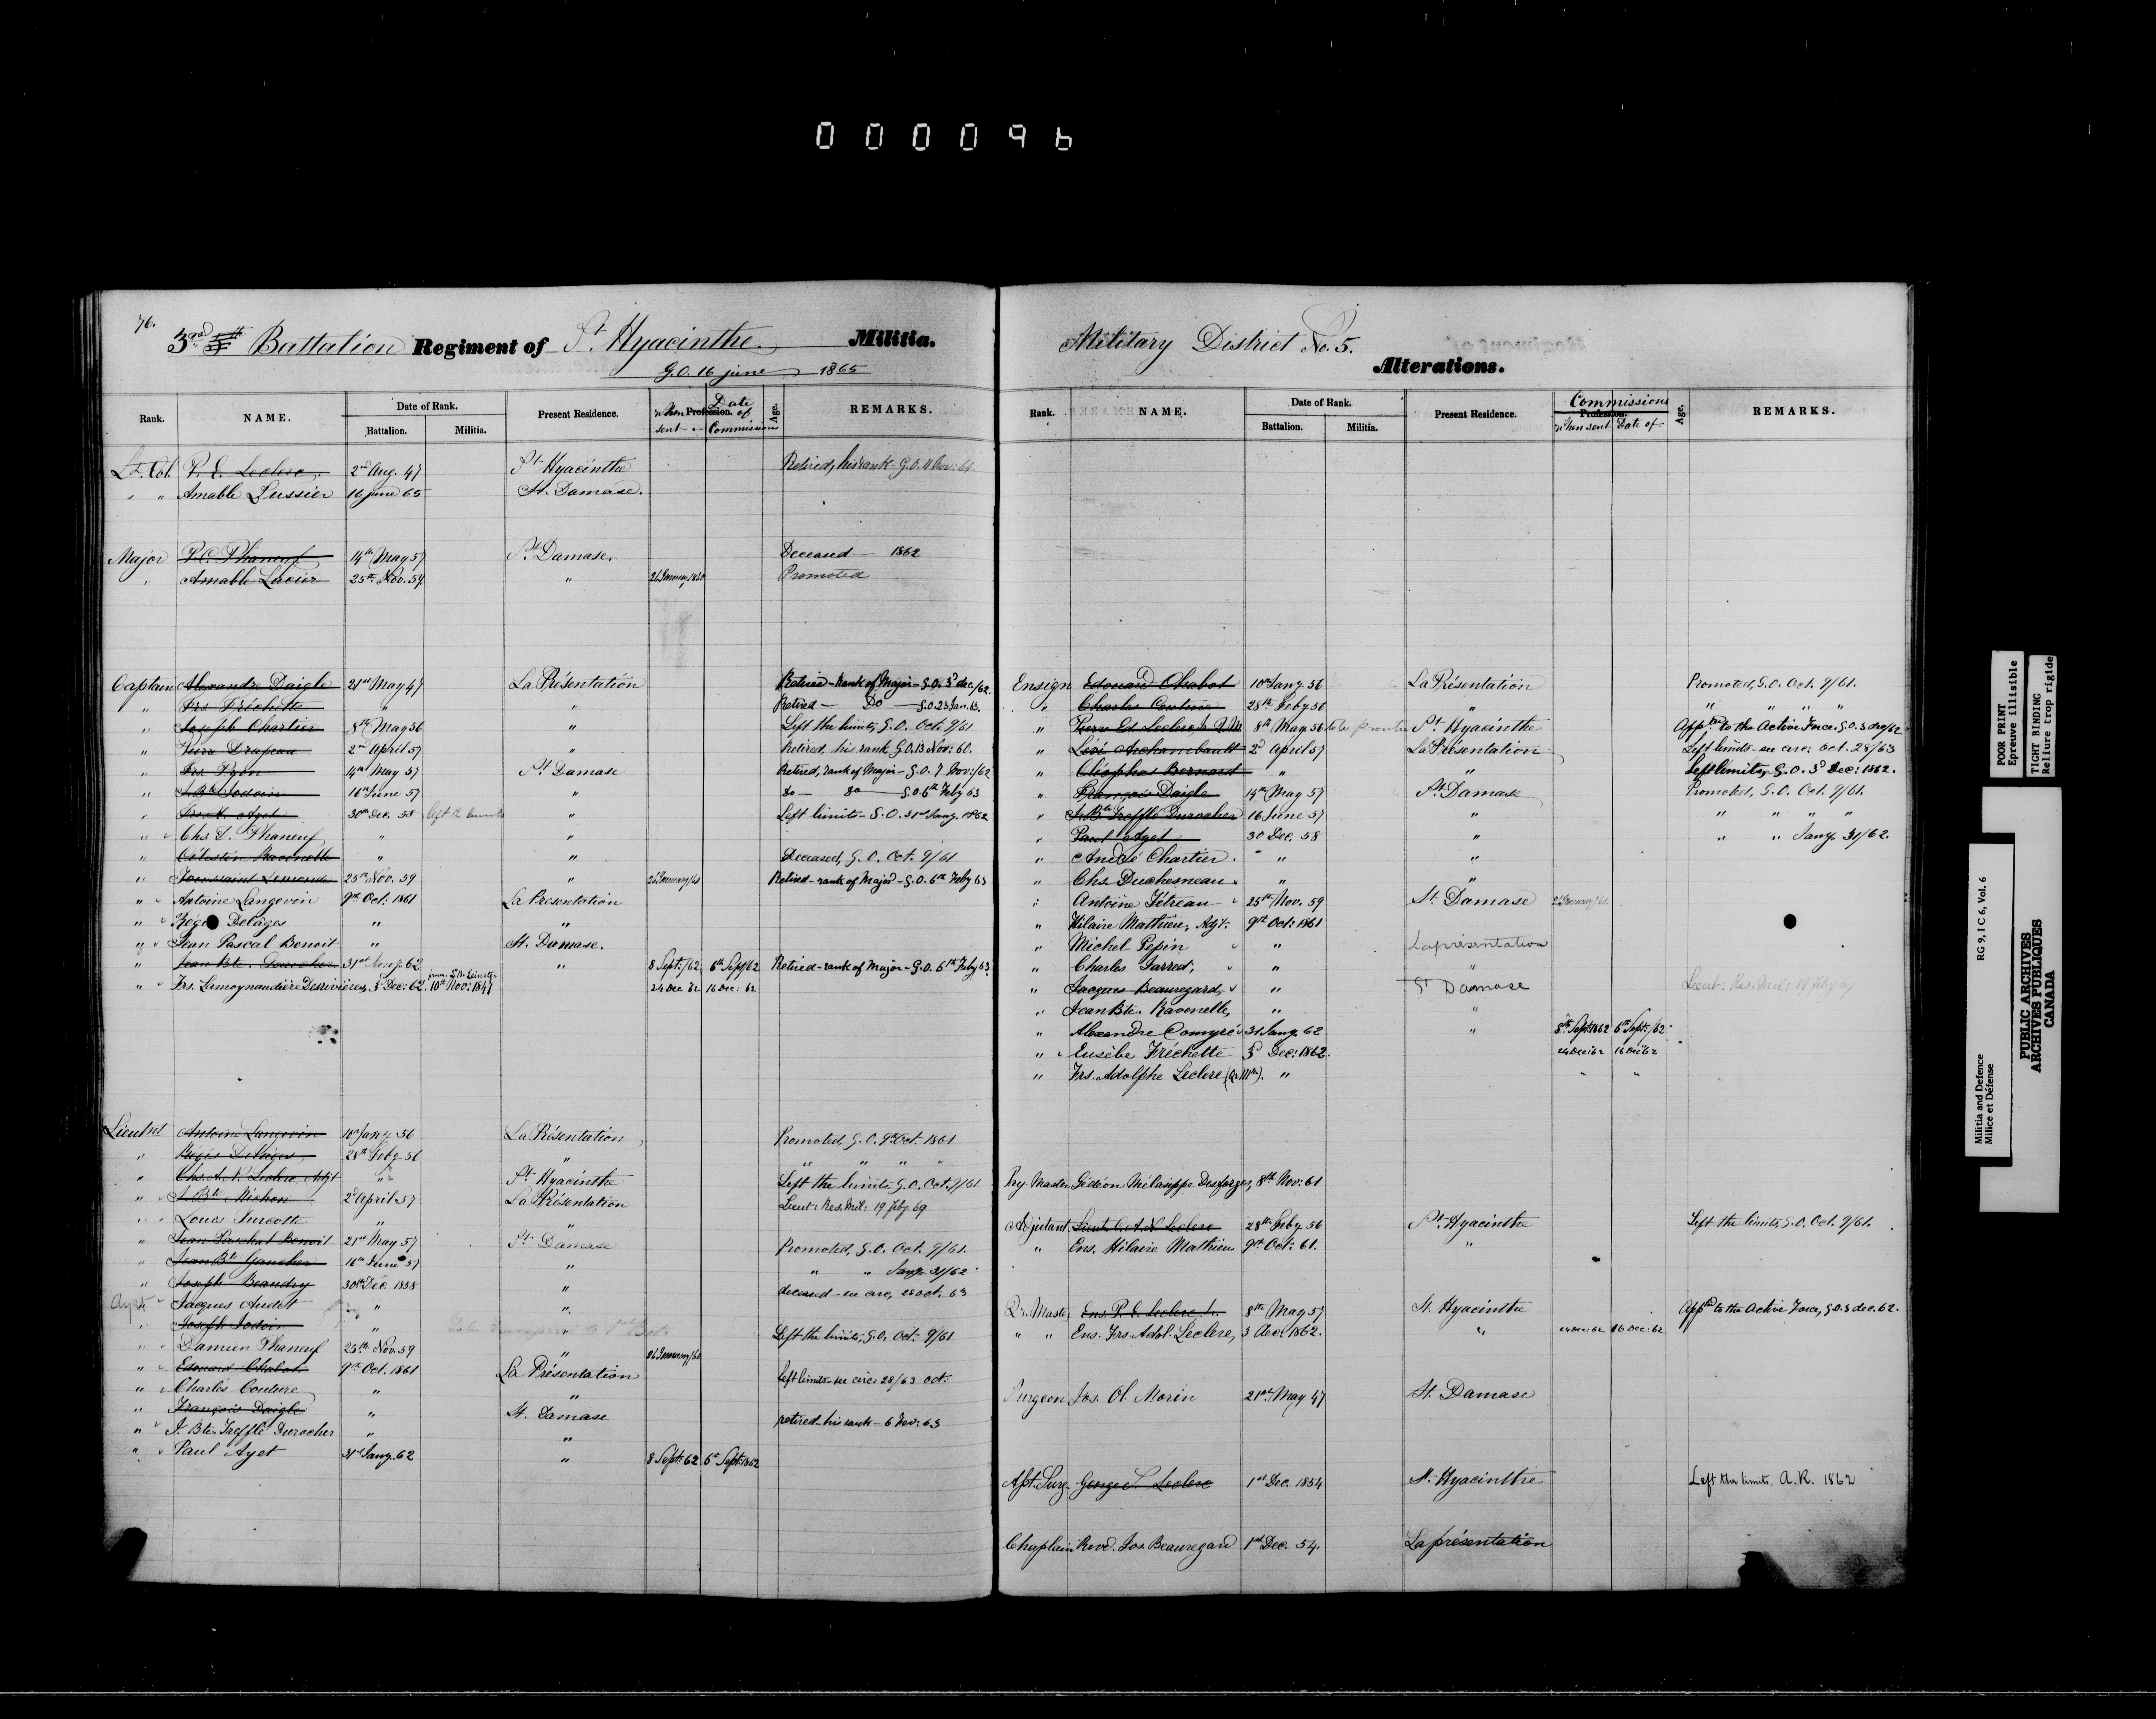 000096
76.
3rd Battalion Regiment of St Hyacinthe Militia.
G.O. 16 june 1865
Rank. NAME. Date of Rank. Battalion. Militia. Present Residence. When sent Profession. Date of Commission Age. REMARKS.
Lt. Col. P. E. Leclere 2nd Aug. 47 St Hyacinthe Retired, his rank G.O. 11 Nov: 64
" " Amable Lussier 16 june 65 St. Damase.
Major P. C. Phaneuf 14th May 57 St Damase. Deceased - 1862
" Amable Lucier 25th Nov. 59 " 26 January 1860 Promoted
Captain Alexandre Daigle 21st May 47 La Présentation Retired - Rank of Major - G.O. 3d dec/62.
" Frs Fréchette " " Retired - Do - G.O. 23 Jan. 63.
" Joseph Chartier 8th May 56 " Left the limits, G.O. Oct. 9/61
" Pierre Drapeau 2nd April 57 " Retired, his rank, G.O. 13 Nov: 60.
" Frs Pyon 14th May 57 St Damase Retired, rank of Major - G.O. 7 Nov:/62
" J. Bte Jodoin 16th June 57 " do - do - G.O. 6th Feby 63
" Frs X. Ayet 30th Dec. 58 left the limits " Left limits - G.O. 31st Jany. 1862
" Chs D. Phaneuf " "
" Célestin Ravenelle " " Deceased, G.O. Oct. 9/61
" Toussaint Lemonde 25th Nov. 59 " 26 January/60 Retired - rank of Major - G.O. 6th Feby 63
" Antoine Langevin 9th Oct: 1861 La Presentation
" Régis Delâges " "
" Jean Pascal Benoit " St. Damase.
" Jean Bte. Gaucher 31st Jany. 62 " 8 Sept:/62 6th Sept/62 Retired - rank of Major - G.O. 6th Feby 63
" Frs. Lamoynaudière Desrivières, 3 Dec: 62. 10th Nov: 1847 24 Dec 62 16 Dec: 62
Lieutnt Antoine Langevin 10th Jany. 56 La Présentation Promoted, G.O. 9th Oct. 1861
" Régis Delâges 28th Feby. 56 " " " " "
" Chs. A. N. Leclere, Adjt " St Hyacinthe Left the limits G.O. Oct. 9/61
" J. Bte Michon 2d April 57 La Présentation Lieut: Res. Mil: 19 Feby. 69
" Louis Turcotte " "
" Jean Paschal Benoit 21st May 57 St Damase Promoted, G.O. Oct. 9/61.
" Jean Bte Gaucher 16th June 57 " " " Jany 31/62
" Joseph Beaudry 30th Dec. 1858 " deceased - en circ, 28 oct. 63
" Jacques Audet " "
" Joseph Jodoin " " Left the limits, G.O. Oct: 9/61
" Damien Phaneuf 25th Nov. 59 " 26 January/60
" Edouard Chabot 9th Oct. 1861 La Présentation Left limits - en circ: 28/63 oct:
" Charles Couture " "
" François Daigle " St. Damase retired - his rank - 6 Nov: 63
" J. Bte. Treffle Durocher " "
" Paul Ayet 31st Jany. 62 " 8 Sept: 62 6th Sept: 1862
Military District No. 5.
Alterations.
Rank. NAME. Date of Rank. Battalion. Militia. Present Residence. Commissions Profession. When sent Date of Age. REMARKS.
Ensign Edouard Chabot 10th Jany 56 La Présentation Promoted, G.O. Oct. 9/61.
" Charles Couture 28th Feby 56 " " " " "
" Pierre Ed. Leclere Jr. Q.M. 8th May 56 St Hyacinthe Apptd to the Active Force, G.O. 3 dec/62
" Lévi Archambault 2d April 57 La Présentation Left limits - en circ: oct. 28/63
" Cléophas Bernard " " Left limits, G.O. 3d Dec: 1862.
" François Daigle 14th May 57 St Damase Promoted, G.O. Oct. 9/61.
" J. Bte Treffle Durocher 16 June 57 " " " " "
" Paul Ayet 30 Dec. 58 " " " Jany 31/62.
" André Chartier. " "
" Chs. Duchesneau " "
" Antoine Tétreau 25th Nov. 59 St. Damase 26 January/60
" Hilaire Mathieu, Adjt: 9th Oct: 1861
" Michel Pepin " Laprésentation
" Charles Jarred, " "
" Jacques Beauregard, " St Damase Lieut: Res. Mil: 19 Feby 69
" Jean Bte. Ravenelle, " "
" Alexandre Comyré 31 Jany. 62 " 8th Sept 1862 6th Sept:/62
" Eusèbe Fréchette 3d Dec: 1862. 24 Dec 62 16 Dec 62
" Frs. Adolphe Leclere (Qr. Mr.). " " "
Pay Master Gédéon Mélasippe Desforges, 8th Nov: 61
Adjutant Lieut. C. A. N. Leclere 28th Feby 56 St Hyacinthe Left the limits, G.O. Oct. 9/61.
" Ens. Hilaire Mathieu 9th Oct: 61. "
Qr. Master Ens. P. E. Leclere Jr. 8th May 57 St. Hyacinthe Apptd to the Active Force, G.O. 3 dec. 62.
" " Ens. Frs. Adol. Leclere, 3 dec. 1862. " 24 Dec: 62 16 Dec: 62
Surgeon Jos. Ol. Morin 21st May 47 St. Damase
Asst. Surg. George S. Leclere 1st Dec. 1854 St. Hyacinthe Left the limits. A.R. 1862
Chaplain Revd. Jos. Beauregard 1st Dec. 54. La présentation
POOR PRINT
Epreuve illisible
TIGHT BINDING
Reliure trop rigide
Militia and Defence
Milice et Défense
RG 9, I C 6, Vol. 6
PUBLIC ARCHIVES
ARCHIVES PUBLIQUES
CANADA